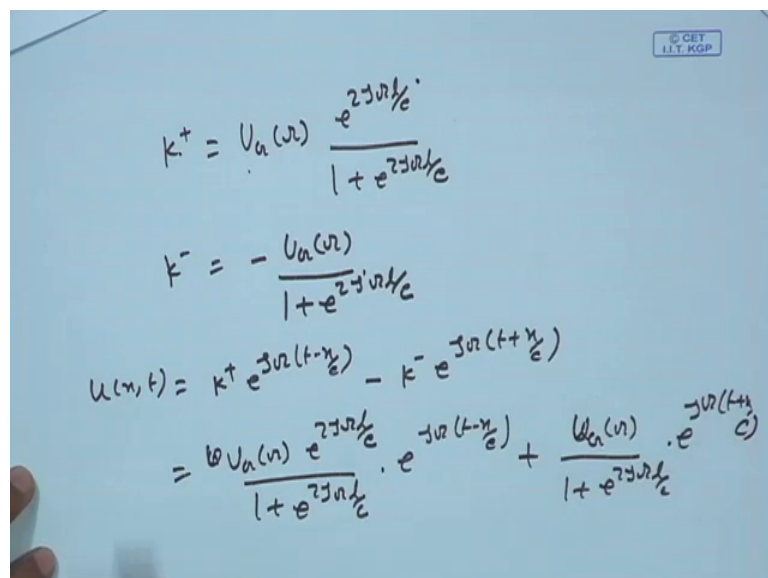 © CET
I.I.T. KGP
K⁺ = U_G(Ω) e^{2jΩl/c} / (1 + e^{2jΩl/c})
K⁻ = - U_G(Ω) / (1 + e^{2jΩl/c})
u(x,t) = K⁺ e^{jΩ(t-x/c)} - K⁻ e^{jΩ(t+x/c)}
= U_G(Ω) e^{2jΩl/c} / (1 + e^{2jΩl/c}) · e^{jΩ(t-x/c)} + U_G(Ω) / (1 + e^{2jΩl/c}) · e^{jΩ(t+x/c)}